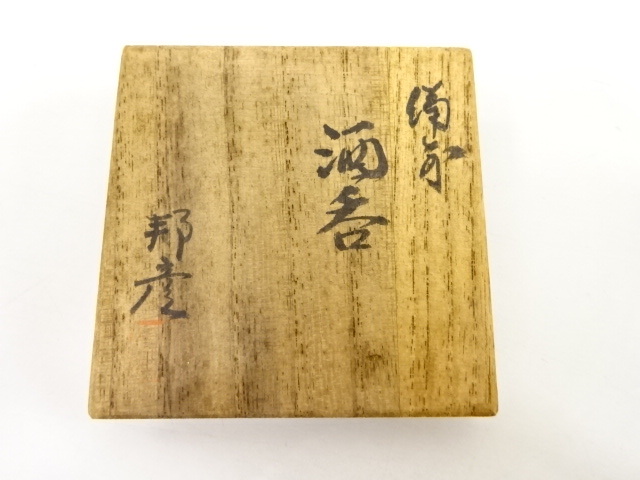 備前
酒呑
邦彦